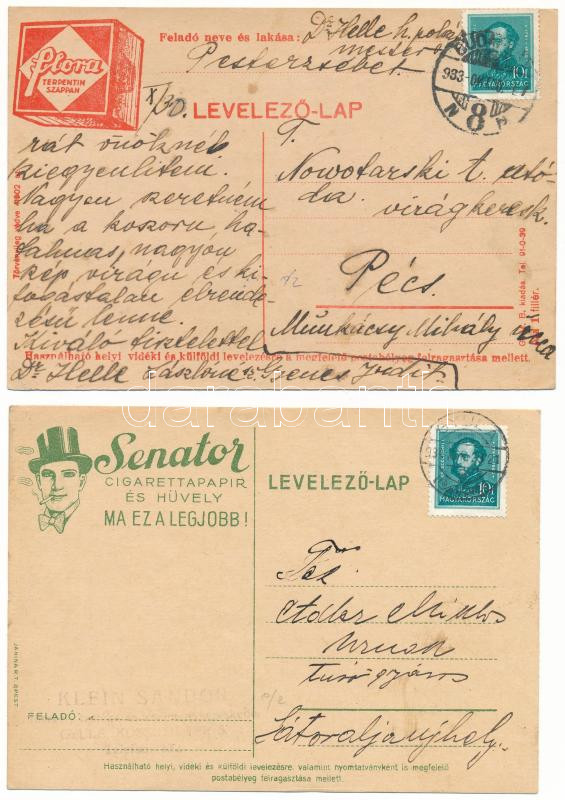 Flora
TERPENTIN
SZAPPAN
Feladó neve és lakása: Dr Helle h. 
Pesterzsébet
MAGYARORSZÁG
10f
933
8
X/30.
LEVELEZŐ-LAP
rát önöknek
kiegyenlíteni.
Nagyon szeretném
ha a koszoru ha-
talmas, nagyon
szép virágu és ki-
fogástalan elrende-
zésű lenne.
Kiváló tisztelettel
Dr Helle Lászlóné
T.
Nowotarski t. utó-
da
virágkeresk.
Pécs.
Munkácsy Mihály
Használható helyi, vidéki és külföldi levelezésre a megfelelő postabélyeg felragasztása mellett.
darabanth
Senator
CIGARETTAPAPIR
ÉS HÜVELY
MA EZ A LEGJOBB!
LEVELEZŐ-LAP
10f
MAGYARORSZÁG
Tek
Adler Miklós
urnak
Sátoraljaujhely.
JANINA R.T. BPEST
KLEIN SANDOR
FELADÓ:
Használható helyi, vidéki és külföldi levelezésre, valamint nyomtatványként is megfelelő
postabélyeg felragasztása mellett.